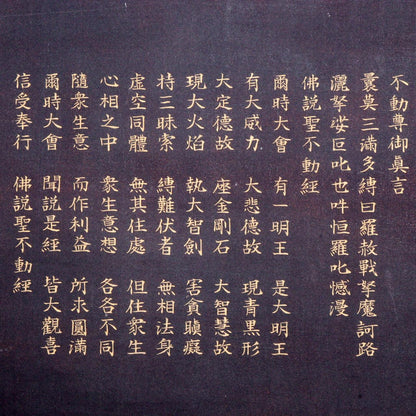 不動尊御真言
曩莫三滿多縛曰羅赦戰拏魔訶路
灑拏娑叵叱也吽恒羅叱憾漫
佛説聖不動經
爾時大會 有一明王 是大明王
有大威力 大悲德故 現青黒形
大定德故 座金剛石 大智慧故
現大火焰 執大智劍 害貪瞋癡
持三昧索 縛難伏者 無相法身
虚空同體 無其住處 但住衆生
心相之中 衆生意想 各各不同
隨衆生意 而作利益 所求圓滿
爾時大會 聞説是經 皆大觀喜
信受奉行 佛説聖不動經